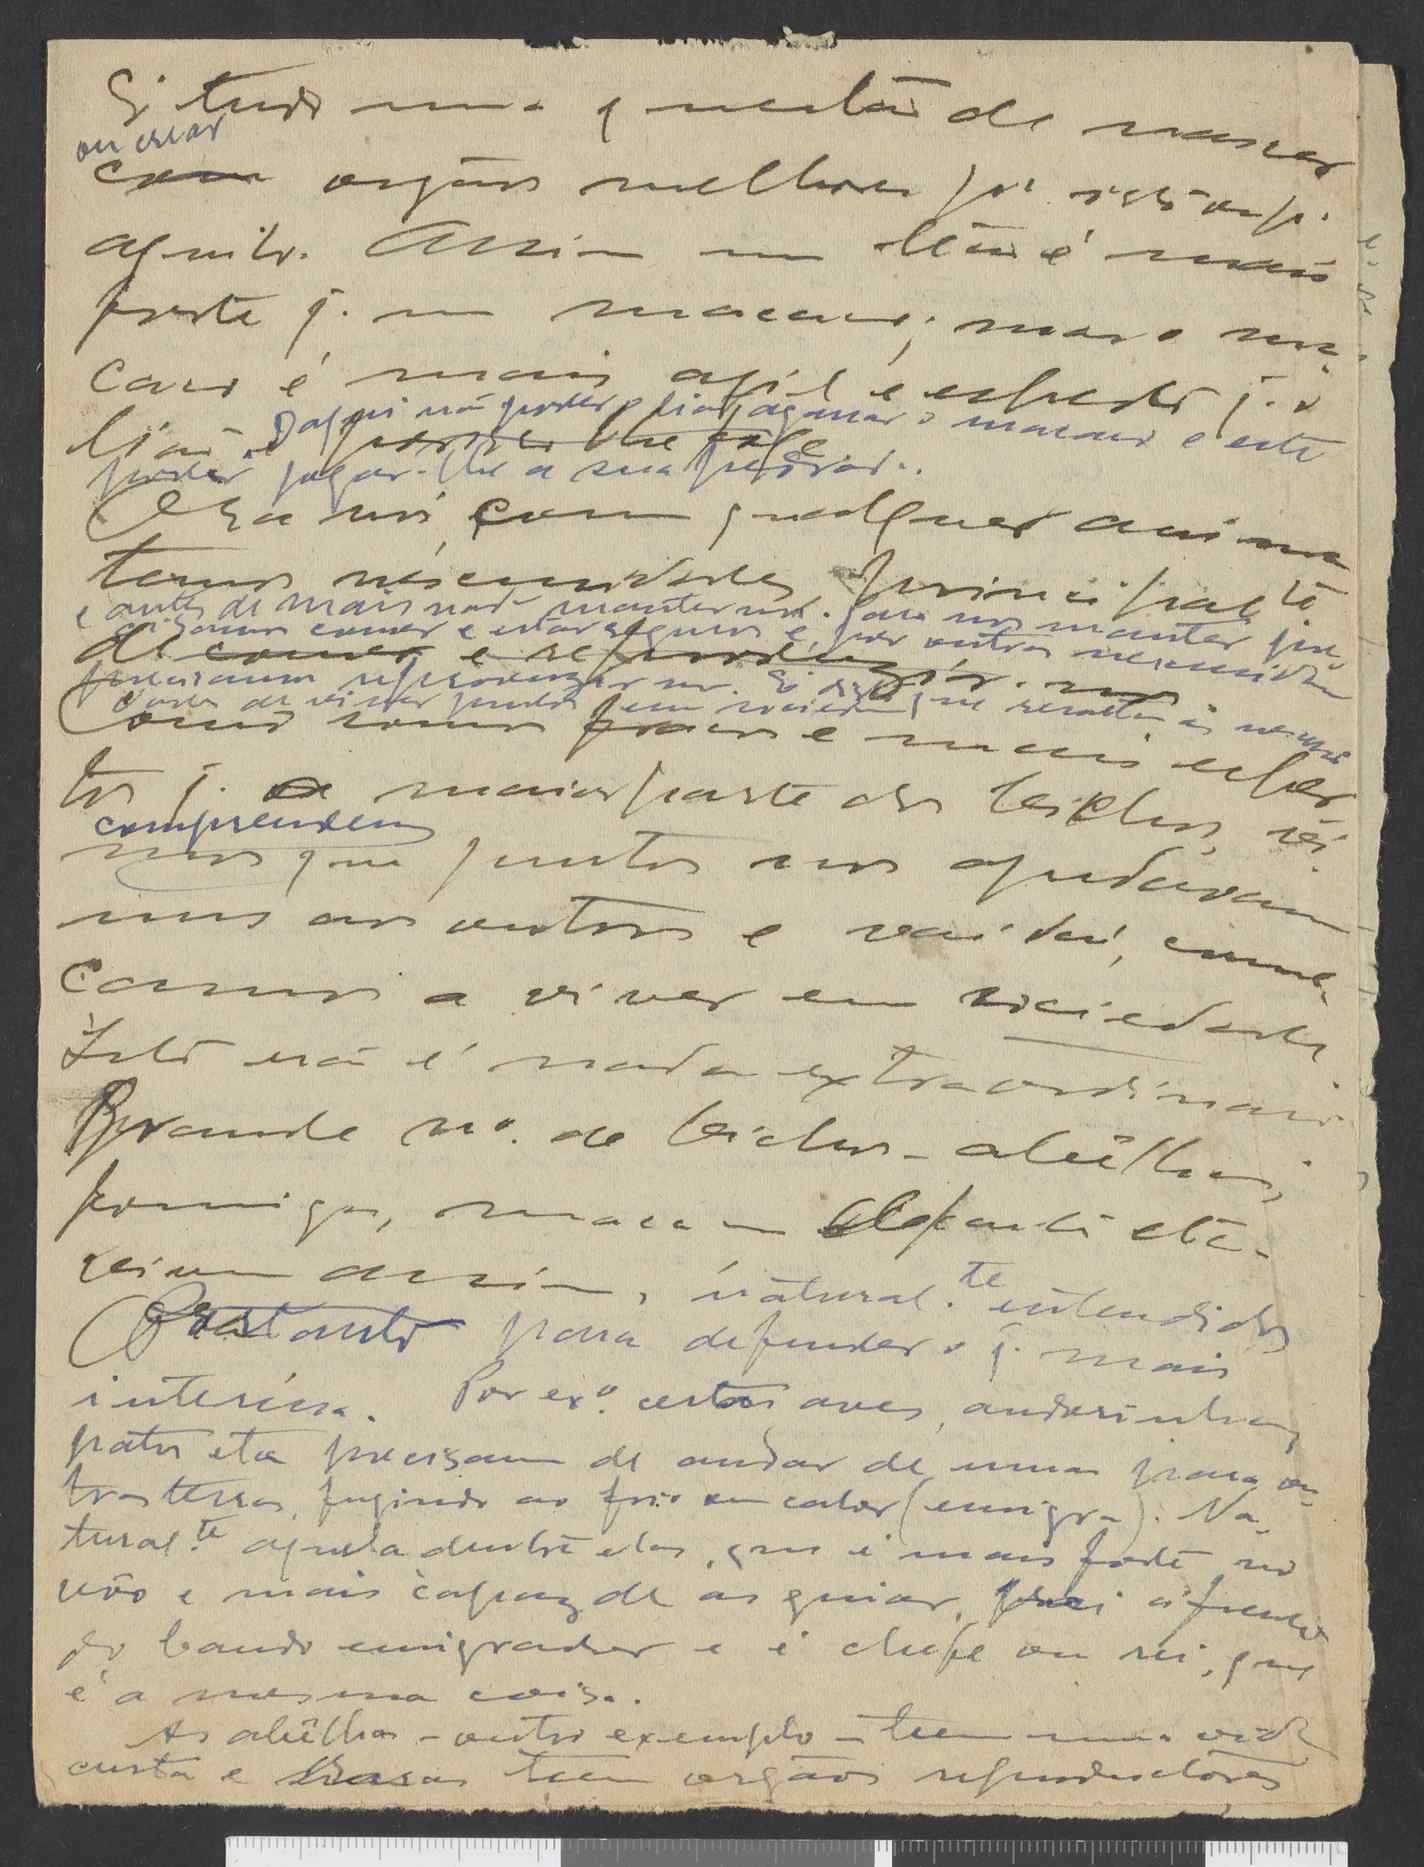 É tudo uma questão de nascer
ou criar
com orgãos melhores p.ª isto ou p.ª
aquilo. Assim um leão é mais
forte q. um macaco; mas o ma-
caco é mais agil e esperto q. o
Daqui não poder o leão agarrar o macaco e este
leão e
poder pregar-lhe a sua
Ora nós como qualquer animal
temos necessidades principalte
e antes de mais nada manter-nos. Para nos manter pre-
cisamos comer e estar seguros e, por outras necessidades
de comer e reproduzir-nos
precisamos reproduzir-nos.
Como somos fracos e mais esper
tos q. a maior parte dos bichos, vi
comprendemos
mos que juntos nos ajudávamos
uns aos outros e vai daí, come-
çamos a viver em sociedade
Isto não é nada extraordinario
Grande no. de bichos - abêlhas,
formigas, macacos elefantes etc.
vivem assim, natural.te entendidos
Portanto para defender o q. mais
interéssa. Por exo. certas aves, andorinhas,
patos etc precisam de andar de umas para ou-
tras terras, fugindo ao frio ou calor (emigra). Na-
tural.te aquela dentre elas, que é mais forte no
vôo e mais capaz de as guiar, vai á frente
do bando emigrador e é chefe ou rei, que
é a mesma coisa.
As abêlhas - outro exemplo - teem uma vida
curta e teem orgãos reproductores